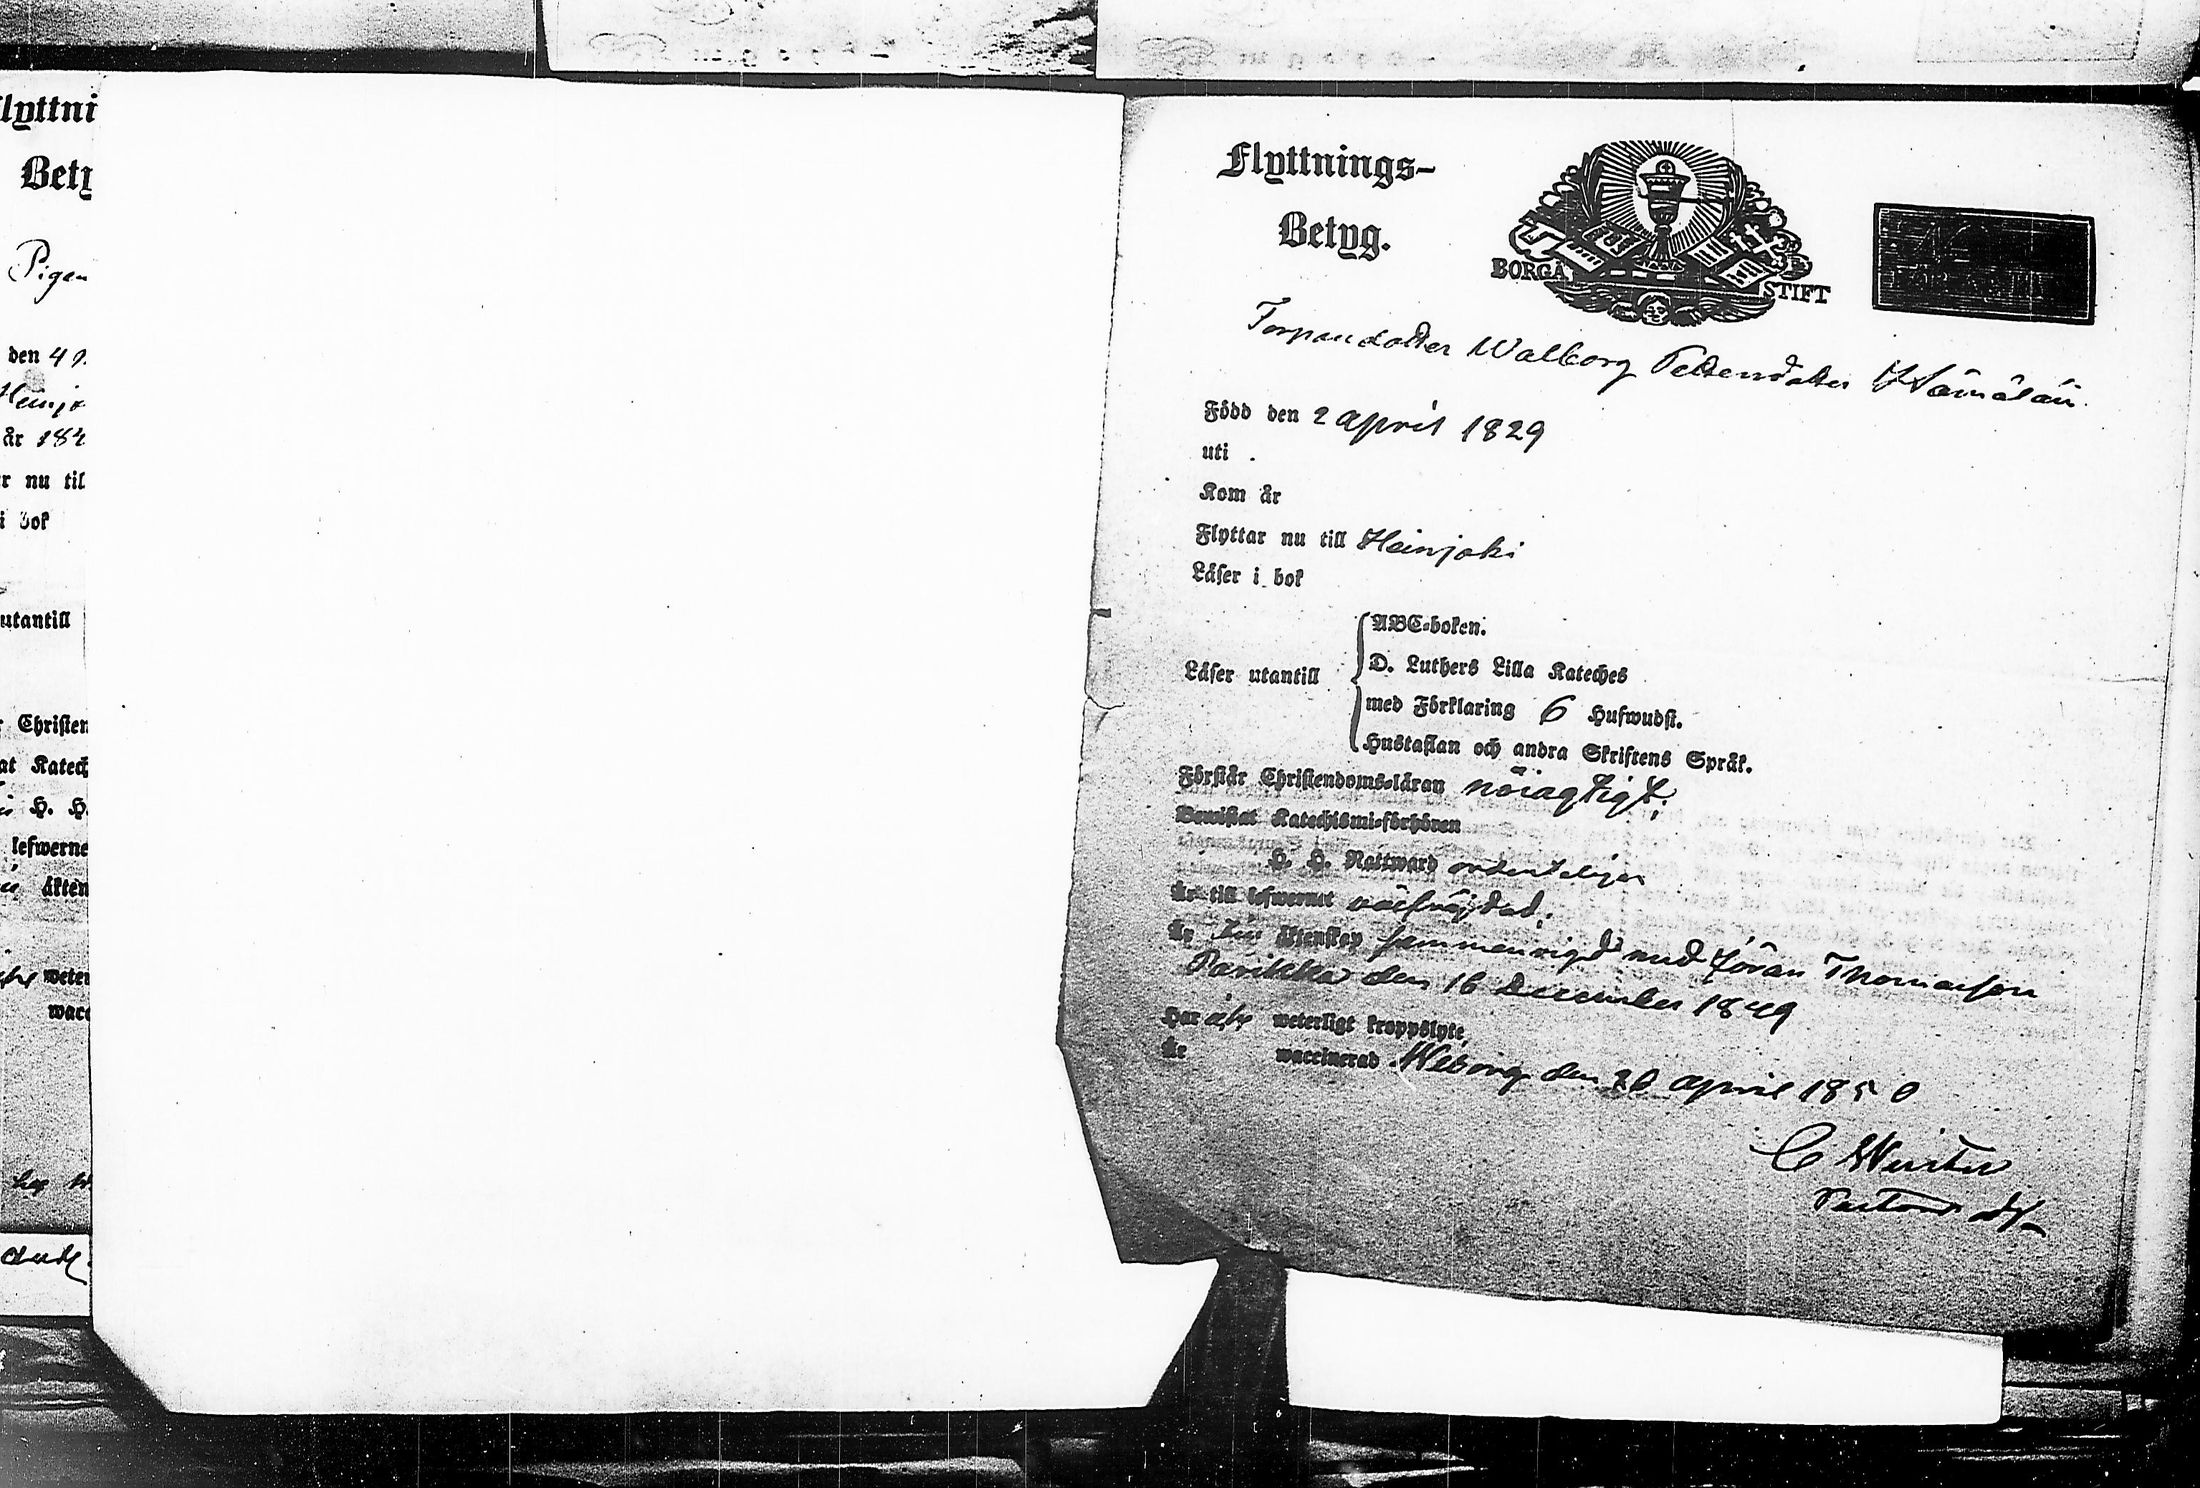 lyttni
Bety
Pigan
den 4
Heinjo
år 184
r nu til
i bok
utantill
r Christen
at Katech
H. H.
lefwerne
äkten
weter
wacc
Flyttnings-
Betyg.
BORGÅ STIFT
Torparedotter Walborg Pettersdotter Hämäläin
Född den 2 April 1829
uti
Kom år
Flyttar nu till Heinjoki
Läser i bok
Läser utantill
ABC-boken.
D. Luthers Lilla Kateches
med Förklaring 6 Hufwudst.
Hustaflan och andra Skriftens Språk.
Förstår Christendoms-läran nöiagtigt;
Bewistat Katechismi-förhören
H. H. Nattward ordenteligen
Är till lefwernet wälfräjdad;
Är till äktenskap sammanvigd med Jöran Thomasson
Parikka den 16 December 1849
Har ej weterligt kroppslyte
Är waccinerad. Wiborg den 26 April 1850
C Winter
Pastors